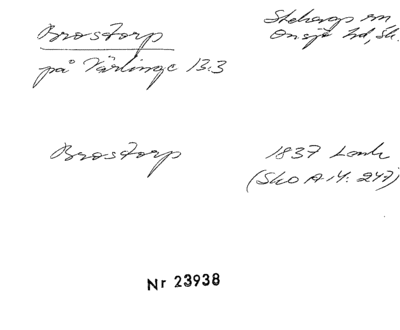 Brostorp
på Värlinge 13:3
Stehags sn
Onsjö hd, Sk.
Brostorp
1837 Lantm
(Sko A 14: 247)
Nr 23938